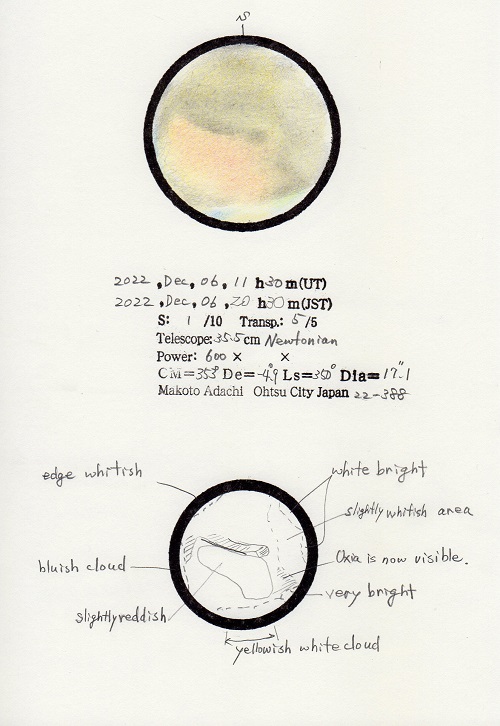 S
2022, Dec, 06, 11 h30m(UT)
2022, Dec, 06, 20 h30m(JST)
S: 1 /10 Transp.: 5/5
Telescope: 35.5cm Newtonian
Power: 600 × ×
CM=353° De=-4.9° Ls=350° Dia=17.1"
Makoto Adachi Ohtsu City Japan 22-388
edge whitish
white bright
slightly whitish area
bluish cloud
Oxia is now visible.
very bright
slightly reddish
yellowish white cloud